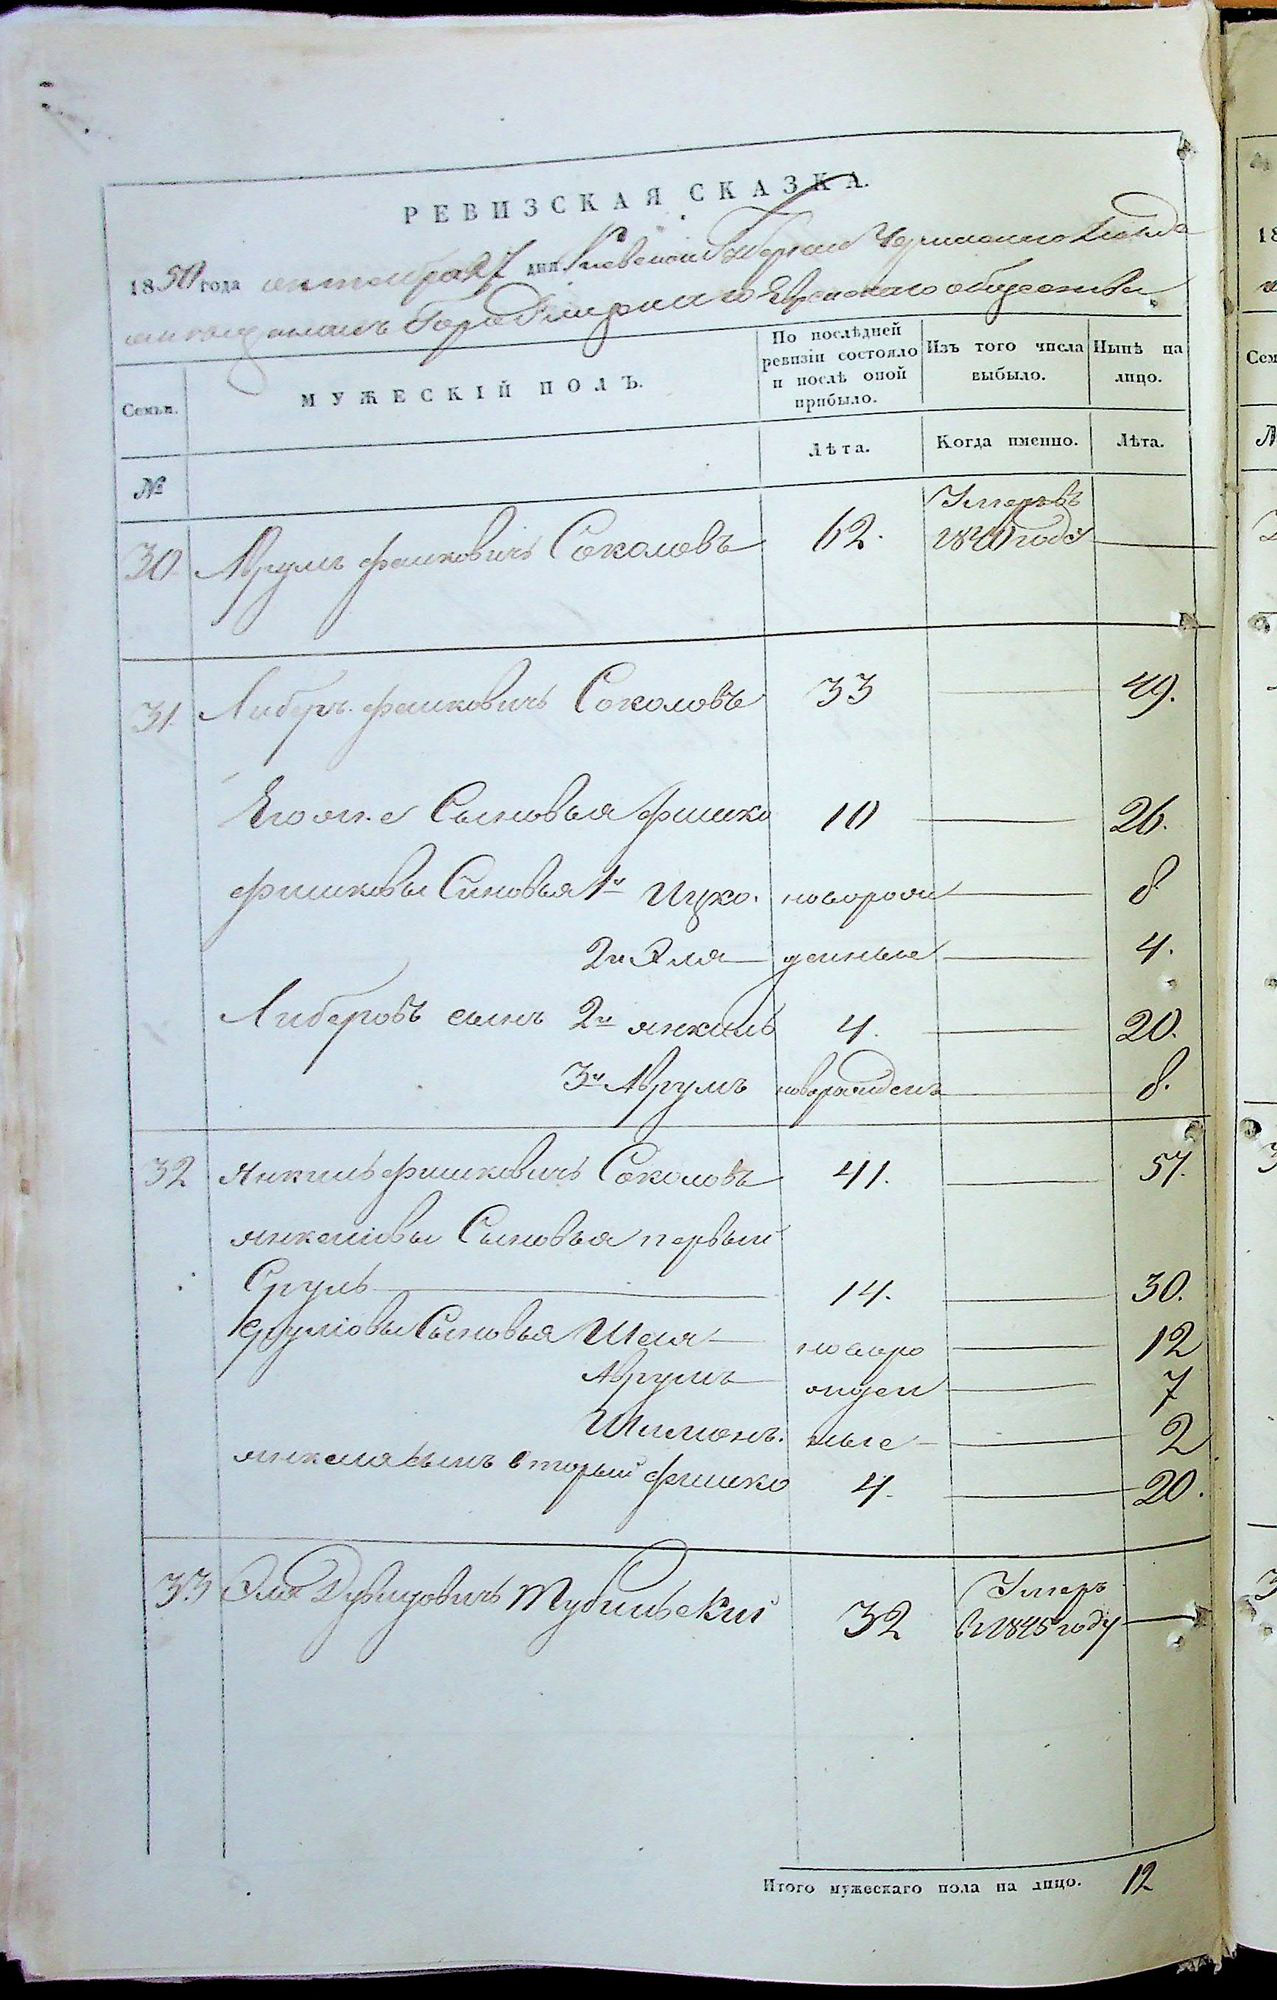 РЕВИЗСКАЯ СКАЗКА.
1850 года октября 27 дня Киевской Губернии Чигиринского Уезда
Еврейскаго общества
Семьи.
МУЖЕСКІЙ ПОЛЪ.
По послѣдней ревизіи состояло и послѣ оной прибыло.
Изъ того числа выбыло.
Нынѣ на лицо.
№
Лѣта.
Когда именно.
Лѣта.
30 Аврумъ Фишковичъ Соколовъ 62. Умеръ въ 1840 году
31. Либеръ Фишковичъ Соколовъ 33 49.
Его Сыновья Фишко 10 26.
Фишковы Сыновья 1й Ицко. новорож 8
2й Эля денные 4.
Либеровъ сынъ 2й Янкиль 4. 20.
3й Аврумъ новорожденъ 8.
32 Янкиль Фишковичъ Соколовъ 41. 57.
Янкелiовы Сыновья первый
Сруль 14. 30.
Срулiовы Сыновья Шая новоро 12
Аврумъ жден 7
Шимонъ. ные 2
Янкеля сынъ вторый Фишко 4. 20.
33 Эля Дувидовичъ Тубильскій 32 Умеръ в 1845 году
Итого мужескаго пола на лицо. 12